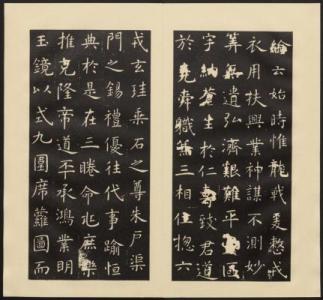 綸云始時惟龍戰爰整戎
衣用扶興業神謀不測妙
筭無遺弘濟艱難平壹區
宇納蒼生於仁壽致君道
於堯舜職兼三相位揔六
戎玄珪乘石之尊朱戶渠
門之錫禮優往代事踰恒
典於是在三睠命兆庶樂
推克隆帝道丕承鴻業明
玉鏡以式九圍席蘿圖而